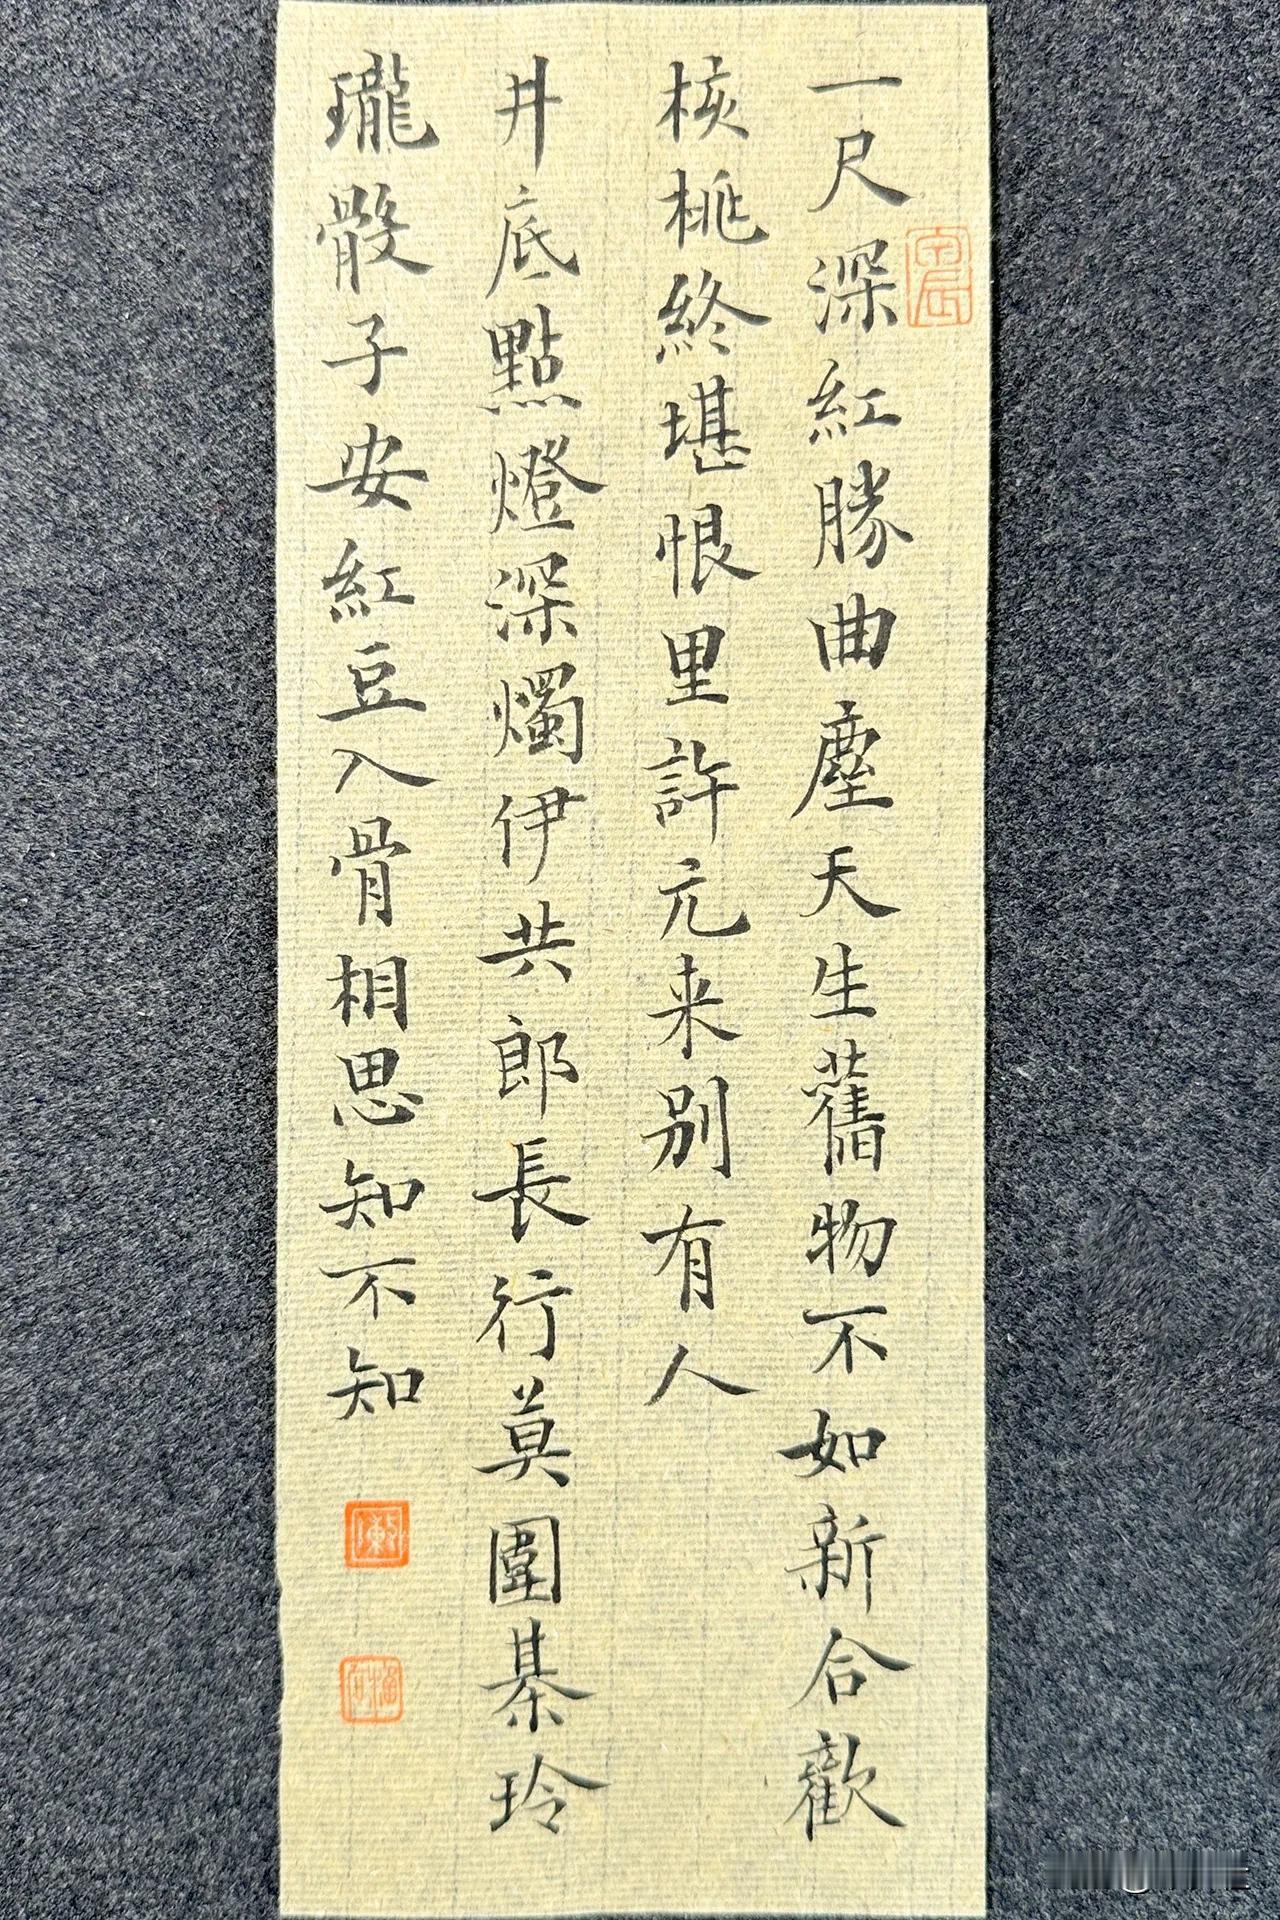 一尺深紅勝曲塵天生舊物不如新合歡
核桃終堪恨里許元来別有人
井底點燈深燭伊共郎長行莫圍棊玲
瓏骰子安紅豆入骨相思知不知